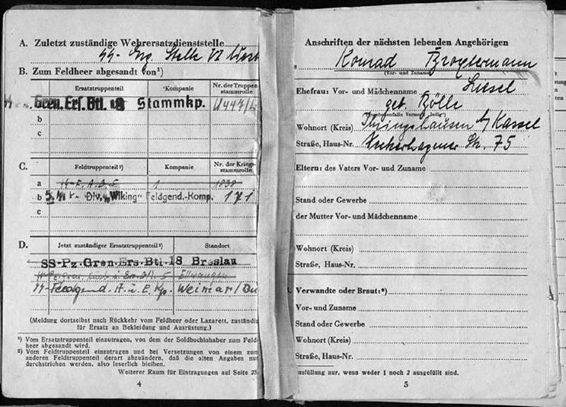 A. Zuletzt zuständige Wehrersatzdienststelle
SS-Erg. Stelle VI West
B. Zum Feldheer abgesandt von¹)
Ersatztruppenteil Kompanie Nr. der Truppenstammrolle
a Gren. Ers. Btl. 18 Stammkp.
b
c
C. Feldtruppenteil²) Kompanie Nr. der Kriegsstammrolle
a 1
b 5. SS-Div. „Wiking" Feldgend.-Komp. 171
c
D. Jetzt zuständiger Ersatztruppenteil³) Standort
SS-Pz. Gren. Ers. Btl. 18 Breslau
5 Ellwangen
SS-Feldgend. A. u. E. Kp. Weimar/Bu
(Meldung dortselbst nach Rückkehr vom Feldheer oder Lazarett, zuständig
für Ersatz an Bekleidung und Ausrüstung.)
¹) Vom Ersatztruppenteil einzutragen, von dem der Soldbuchinhaber zum Feld
heer abgesandt wird.
²) Vom Feldtruppenteil einzutragen und bei Versetzungen von einem zum
anderen Feldtruppenteil derart abzuändern, daß die alten Angaben nur
durchstrichen werden, also leserlich bleiben.
Weiterer Raum für Eintragungen auf Seite
4
Anschriften der nächsten lebenden Angehörigen
Konrad
(Vor- und Zuname)
Ehefrau: Vor- und Mädchenname Liesel
geb. Bölle
Wohnort (Kreis) b/ Kassel
Straße, Haus-Nr. Str. 75
Eltern: des Vaters Vor- und Zuname
Stand oder Gewerbe
der Mutter Vor- und Mädchenname
Wohnort (Kreis)
Straße, Haus-Nr.
Verwandte oder Braut:*)
Vor- und Zuname
Stand oder Gewerbe
Wohnort (Kreis)
Straße, Haus-Nr.
usfüllung nur, wenn weder 1 noch 2 ausgefüllt sind.
5